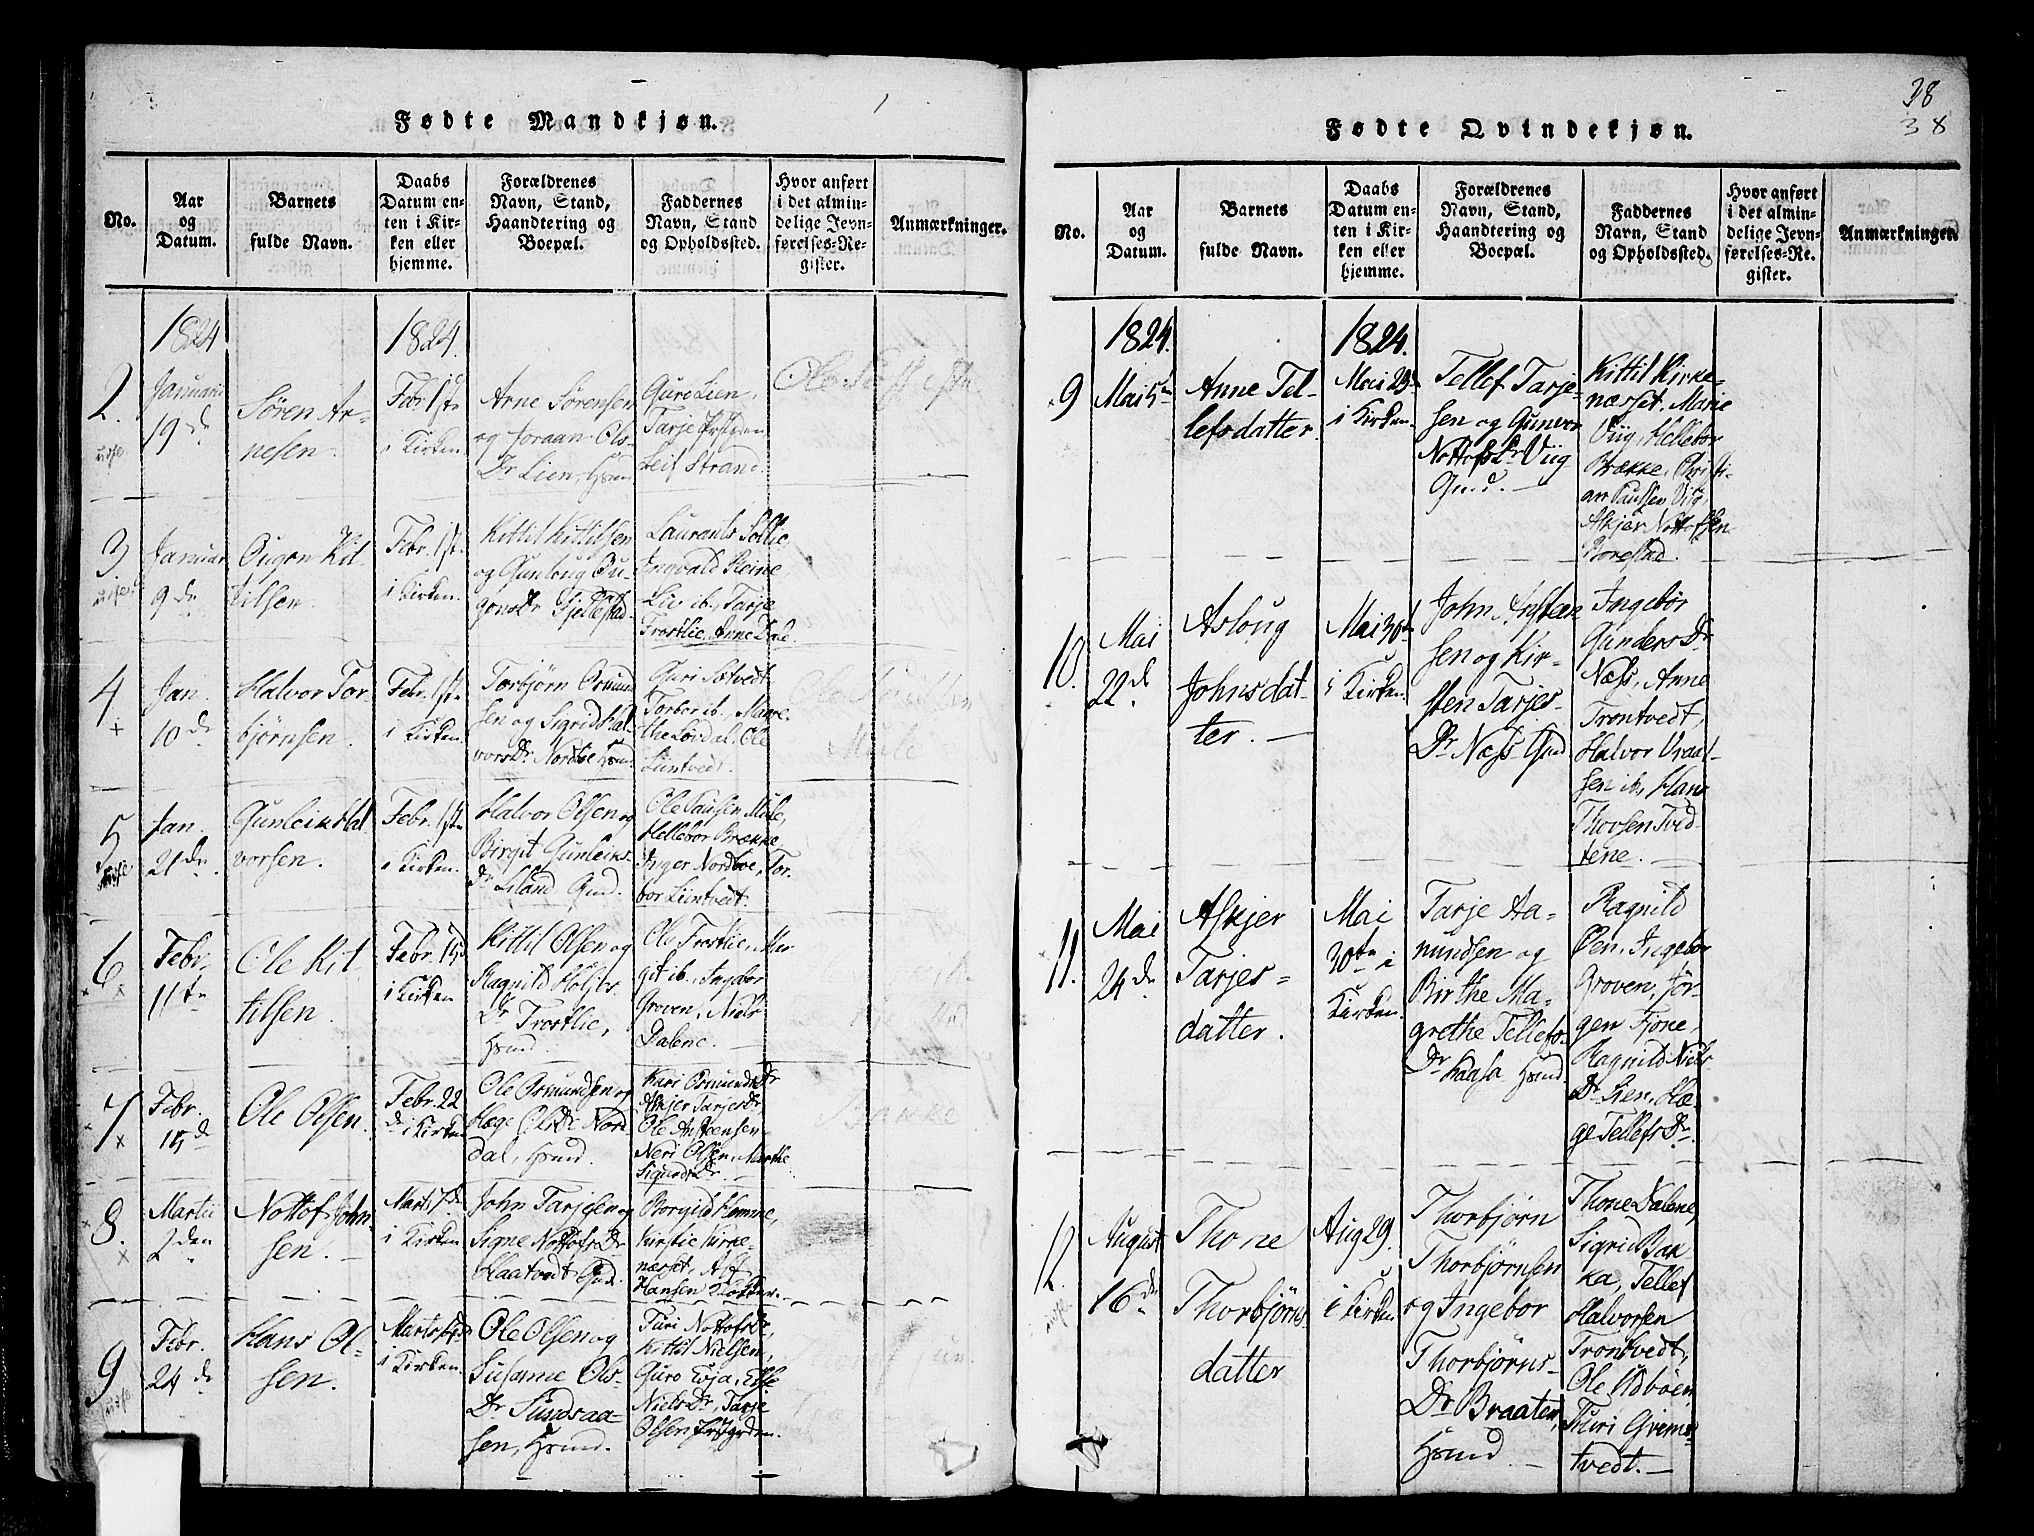 Fødte Mandkjøn.
No.
Aar
og
Datum.
Barnets
fulde Navn.
Daabs
Datum en-
ten i Kir-
ken eller
hjemme.
Forældrenes
Navn, Stand,
Haandtering og
Boepæl.
Faddernes
Navn, Stand
og Opholdssted.
Hvor anført
i det almin-
delige Jevn-
førelses-Re-
gister.
Anmærkninger.
1824
1824.
2.
Januarii
19de
Søren Ar-
nesen.
Febr 1ste
i Kirken
Arne Sørensen
og Joraan Ols-
Dr Lien, Hsmd
Gure Lien,
Tarje
Leif Strand.
3.
Januar
9de
Ougon Kit-
tilsen.
Febr. 1ste
i Kirken.
Kittil Kittilsen
og Gunloug Ou-
gonsDr Gjellestad.
Laurants Sollie,
Ingvald Reine,
Liv ib., Tarje
Frostlie, Anne Dale.
4
Jan.
10de
Halvor Tor-
bjørnsen.
Febr. 1ste
i Kirken.
Torbjørn Osmund-
sen og Sigrid Hal-
vorsDr. Nordbøe Hsmd
Guri Sætvedt
Torbor ib., Marre-
the Løvdal, Ole
Liintvedt.
5
Jan.
21de.
Gunleik Hal-
vorsen.
Febr. 1ste
i Kirken.
Halvor Olsen og
Birgit Gunleiks-
Dr. Liland Gmd.
Ole Paulsen Mule,
Hellebor Brække,
Inger Nordboe, Tor-
bor Liintvedt.
6
Febr.
11te
Ole Kit-
tilsen.
Febr. 15de
i Kirken
Kittil Olsen og
Ragnild Holjes-
Dr Frostlie,
Hsmd.
Ole Frostlie, Mar-
git ib., Ingebor
Groven, Niels
Dalene.
7
Febr.
15de
Ole Olsen.
Febr. 22
de i Kirken
Ole Osmundsen og
Hæge OlsDr Nor-
dal, Hsmd.
Kari OsmundsDr
Askjer TarjesDr,
Ole Ansteensen
Neri Olsen, Marthe
SigurdsDr.
8.
Martii
2den
Nottof John-
sen.
Marts 7de
i Kirken
John Tarjesen og
Signe NottofsDr
Haatvedt Gmd.
Borgild Hemme,
Kirstie Kirke-
næsset, Alf
Hansen Klokker.
9
Febr.
24de
Hans Ol-
sen.
i Kirken.
Ole Olsen og
Susanne Ols-
Dr. Sundsaa-
sen, Hsmd.
Turi NottofsDr,
Kittil Nielsen,
Guro Evja, Else
NielsDr, Tarje
Olsen
38
38
Fødte Qvindekjøn.
No.
Aar
og
Datum.
Barnets
fulde Navn.
Daabs
Datum en-
ten i Kir-
ken eller
hjemme.
Forældrenes
Navn, Stand,
Haandtering og
Boepæl.
Faddernes
Navn, Stand
og Opholdssted.
Hvor anført
i det almin-
delige Jevn-
førelses-Re-
gister.
Anmærkninger.
1824.
1824.
9
Mai 5te
Anne Tel-
lefsdatter.
Mai 23de
i Kirken.
Tellef Tarje-
sen og Gunvor
NottofsDr Viig
Gmd.
Kittil Kirke-
næsset, Marie
Viig, Hellebor
Brække, Christi-
an Paulsen Viig,
Askjer Nottofsen
Borestad.
10.
Mai
22de
Asloug
Johnsdat-
ter.
Mai 30te
i Kirken.
John Ansteen-
sen og Kir-
sten Tarjes-
Dr Næss Gmd
Ingebør
GundersDr
Næss, Anne
Trontvedt,
Halvor Vraal-
sen ib., Hans
Thovsen Tved-
tene.
11.
Mai
24de
Askjer
Tarjes-
datter.
Mai
30te i
Kirken.
Tarje Aa-
nundsen og
Birthe Ma-
grethe Tellefs-
Dr Kaasa Hsmd.
Ragnild
Øen, Ingebor
Groven, Jør-
gen Fjone,
Ragnild Niels
Dr. Lien, Hæ-
ge TellefsDr.
12
August
16de
Thone
Thorbjørns-
datter
Aug 29.
i Kirken
Thorbjørn
Thorbjørnsen
og Ingebor
Thorbjørns-
Dr Braaten,
Hsmd.
Thone Dalene,
Sigrid Bak-
ka, Tellef
Halvorsen
Trontvedt,
Ole Udbøen,
Thuri Grims-
tvedt.